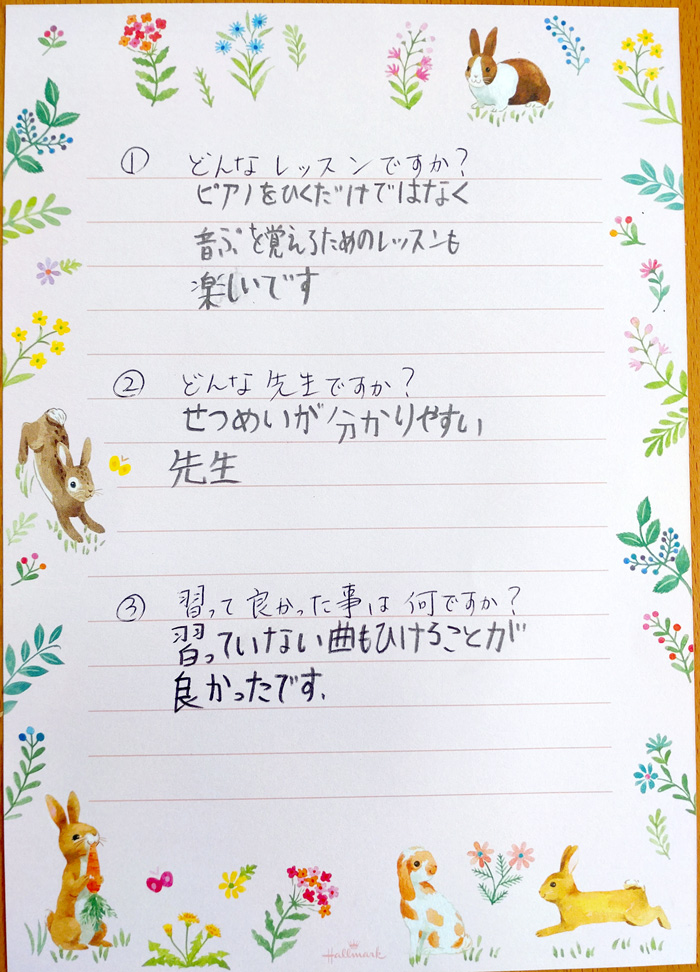 ① どんなレッスンですか?
ピアノをひくだけではなく
音ぷを覚えるためのレッスンも
楽しいです
② どんな先生ですか?
せつめいが分かりやすい
先生
③ 習って良かった事は何ですか?
習っていない曲もひけることが
良かったです、
Hallmark